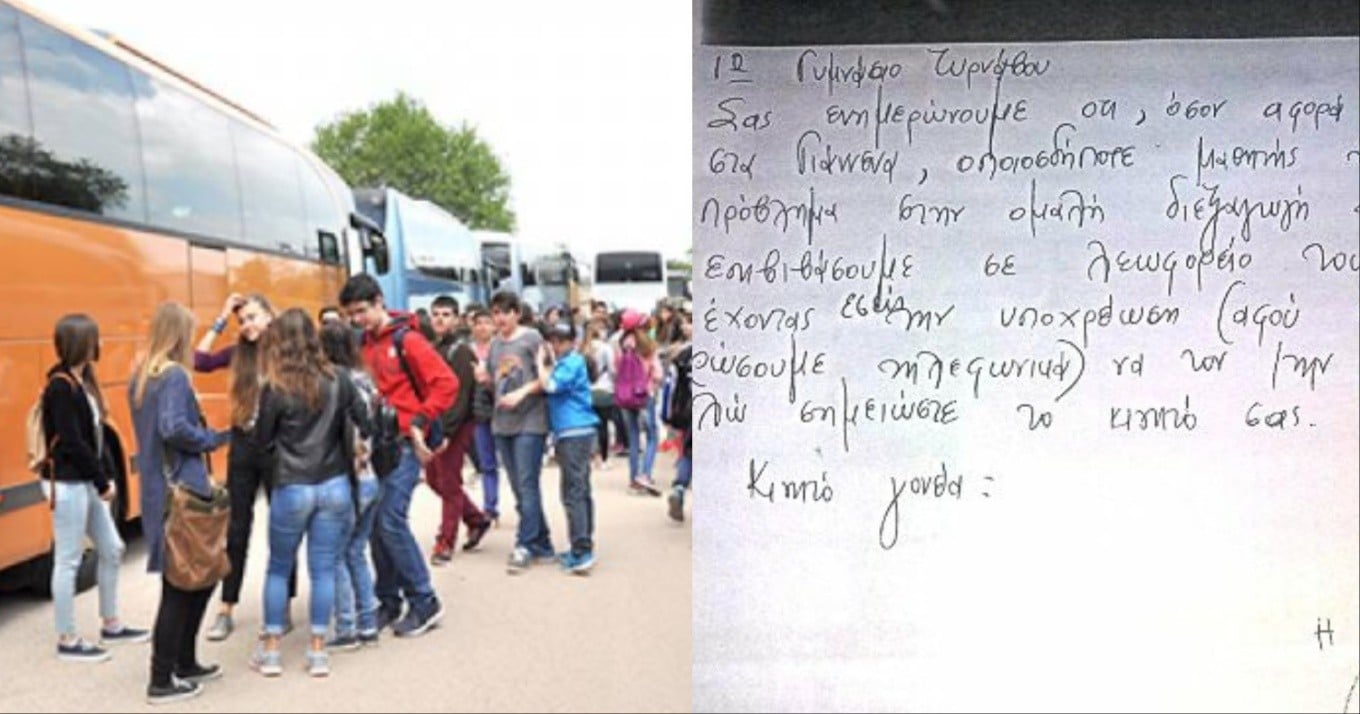 1ο Γυμνάσιο Τυρνάβου
Σας ενημερώνουμε οτι, όσον αφορά
στα Γιάννενα, οποιοσδήποτε μαθητής
πρόβλημα στην ομαλή διεξαγωγή
επιβιβάσουμε σε λεωφορείο του
έχοντας εσείς την υποχρέωση (αφού
ρώσουμε τηλεφωνικά) να τον/την
λώ σημειώστε το κινητό σας.
Κινητό γονέα:
Η